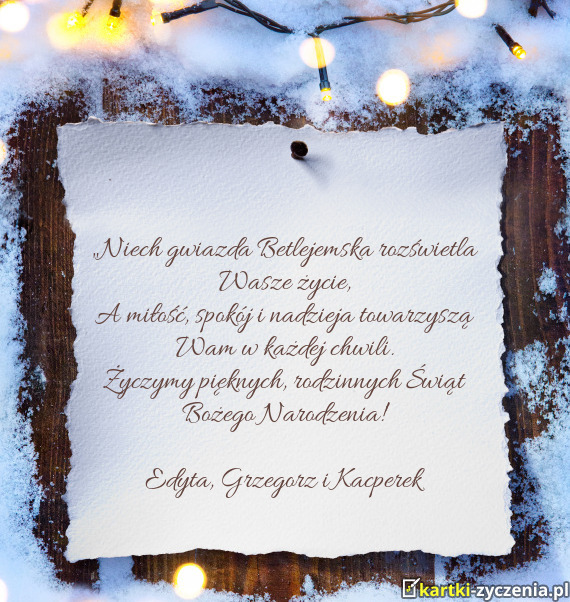 „Niech gwiazda Betlejemska rozświetla
Wasze życie,
A miłość, spokój i nadzieja towarzyszą
Wam w każdej chwili.
Życzymy pięknych, rodzinnych Świąt
Bożego Narodzenia!
Edyta, Grzegorz i Kacperek
kartki-zyczenia.pl